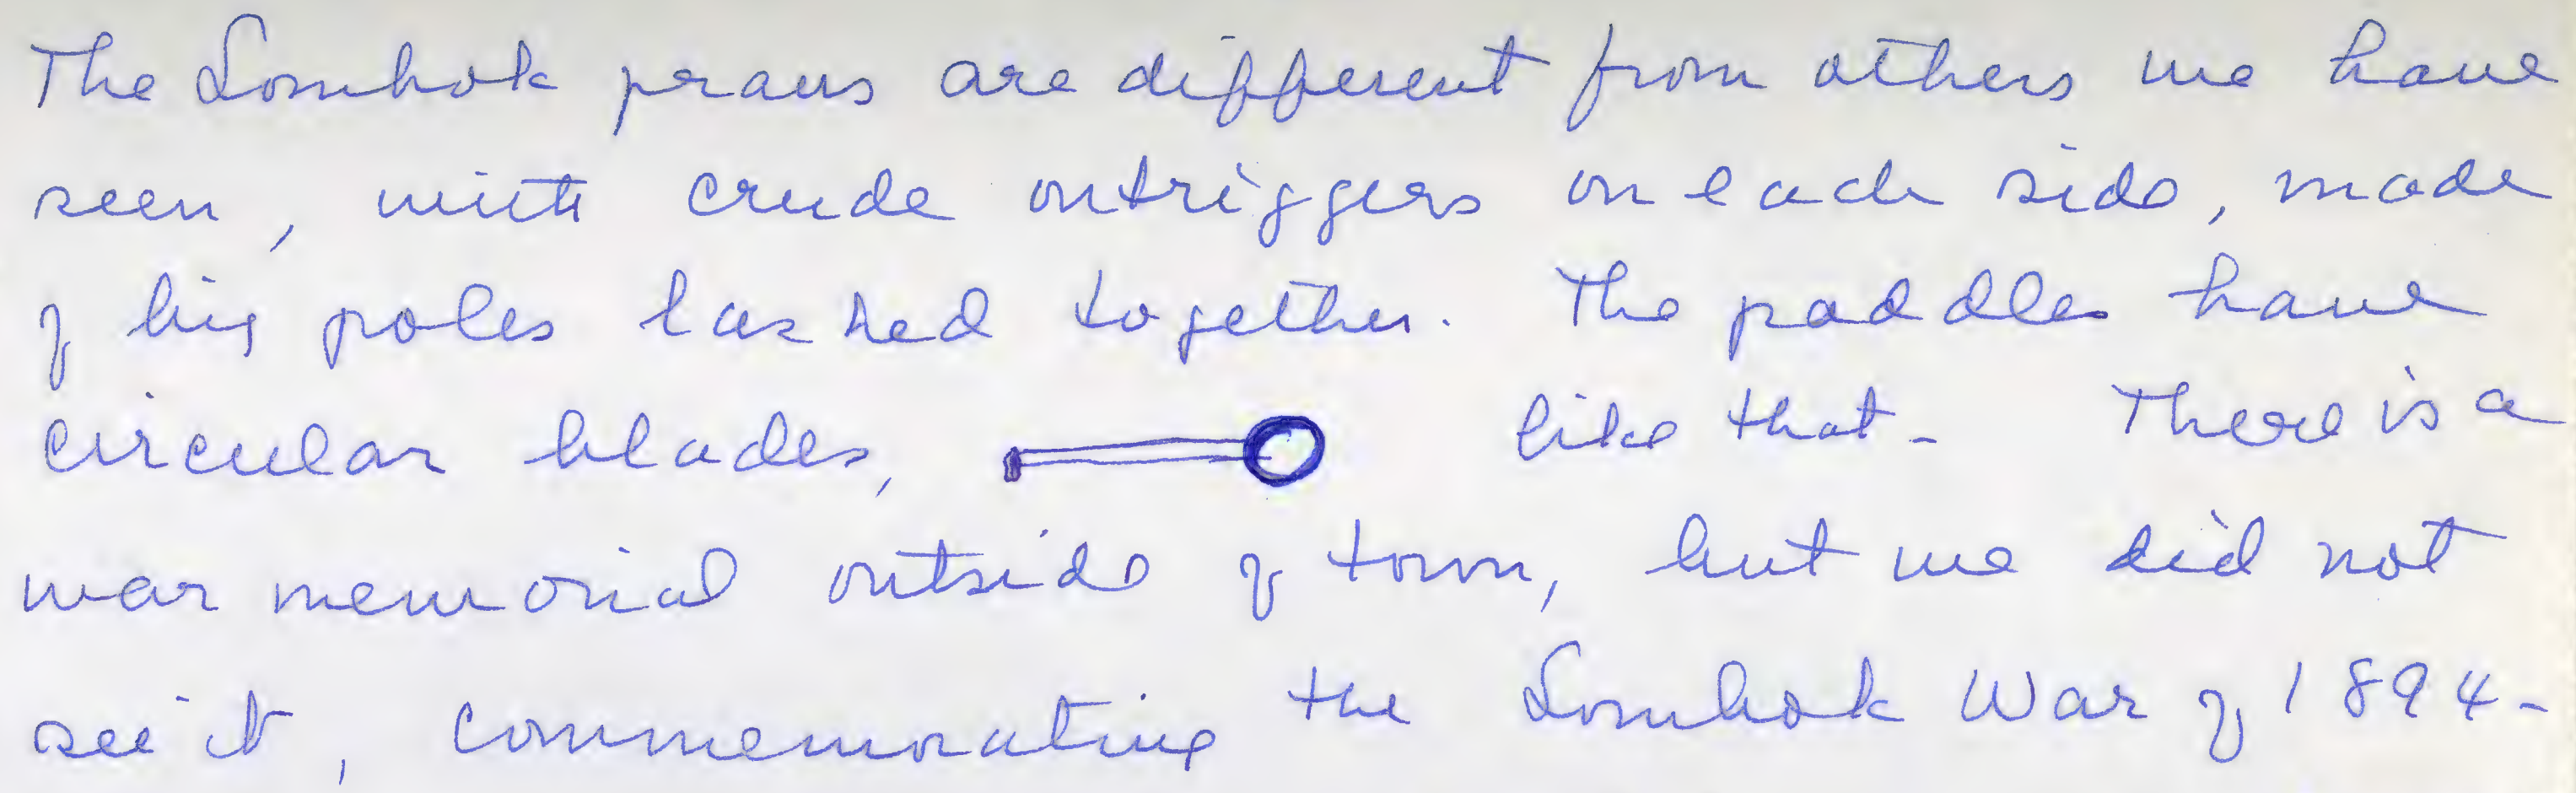 The Lombok praus are different from others we have
seen, with crude outriggers on each side, made
of big poles lashed together. The paddles have
circular blades, like that - There is a
war memorial outside of town, but we did not
see it, commemorating the Lombok War of 1894-